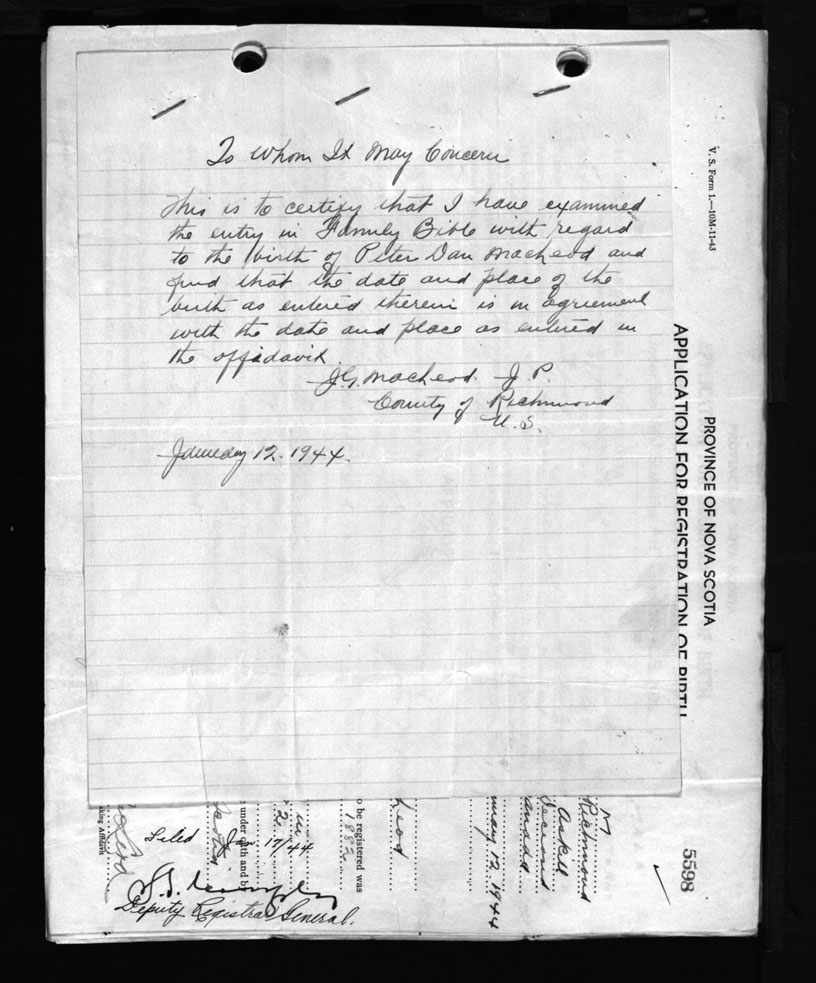 To Whom It May Concern
This is to certify that I have examined
the entry in Family Bible with regard
to the birth of Peter Dan MacLeod and
find that the date and place of the
birth as entered therein is in agreement
with the date and place as entered in
the affidavit.
J.G. MacLeod J.P.
County of Richmond
N.S.
January 12. 1944.
V. S. Form 1.—10M-11-43
PROVINCE OF NOVA SCOTIA
APPLICATION FOR REGISTRATION OF BIRTH
5598
M
Richmond
Askill
Second
anada
uary 12 1944
Leod
o be registered was
1882
in
2
under oath and b
Scotia
Leod
aking Affidavit
Filed Jan 17/44
Deputy Registrar General.